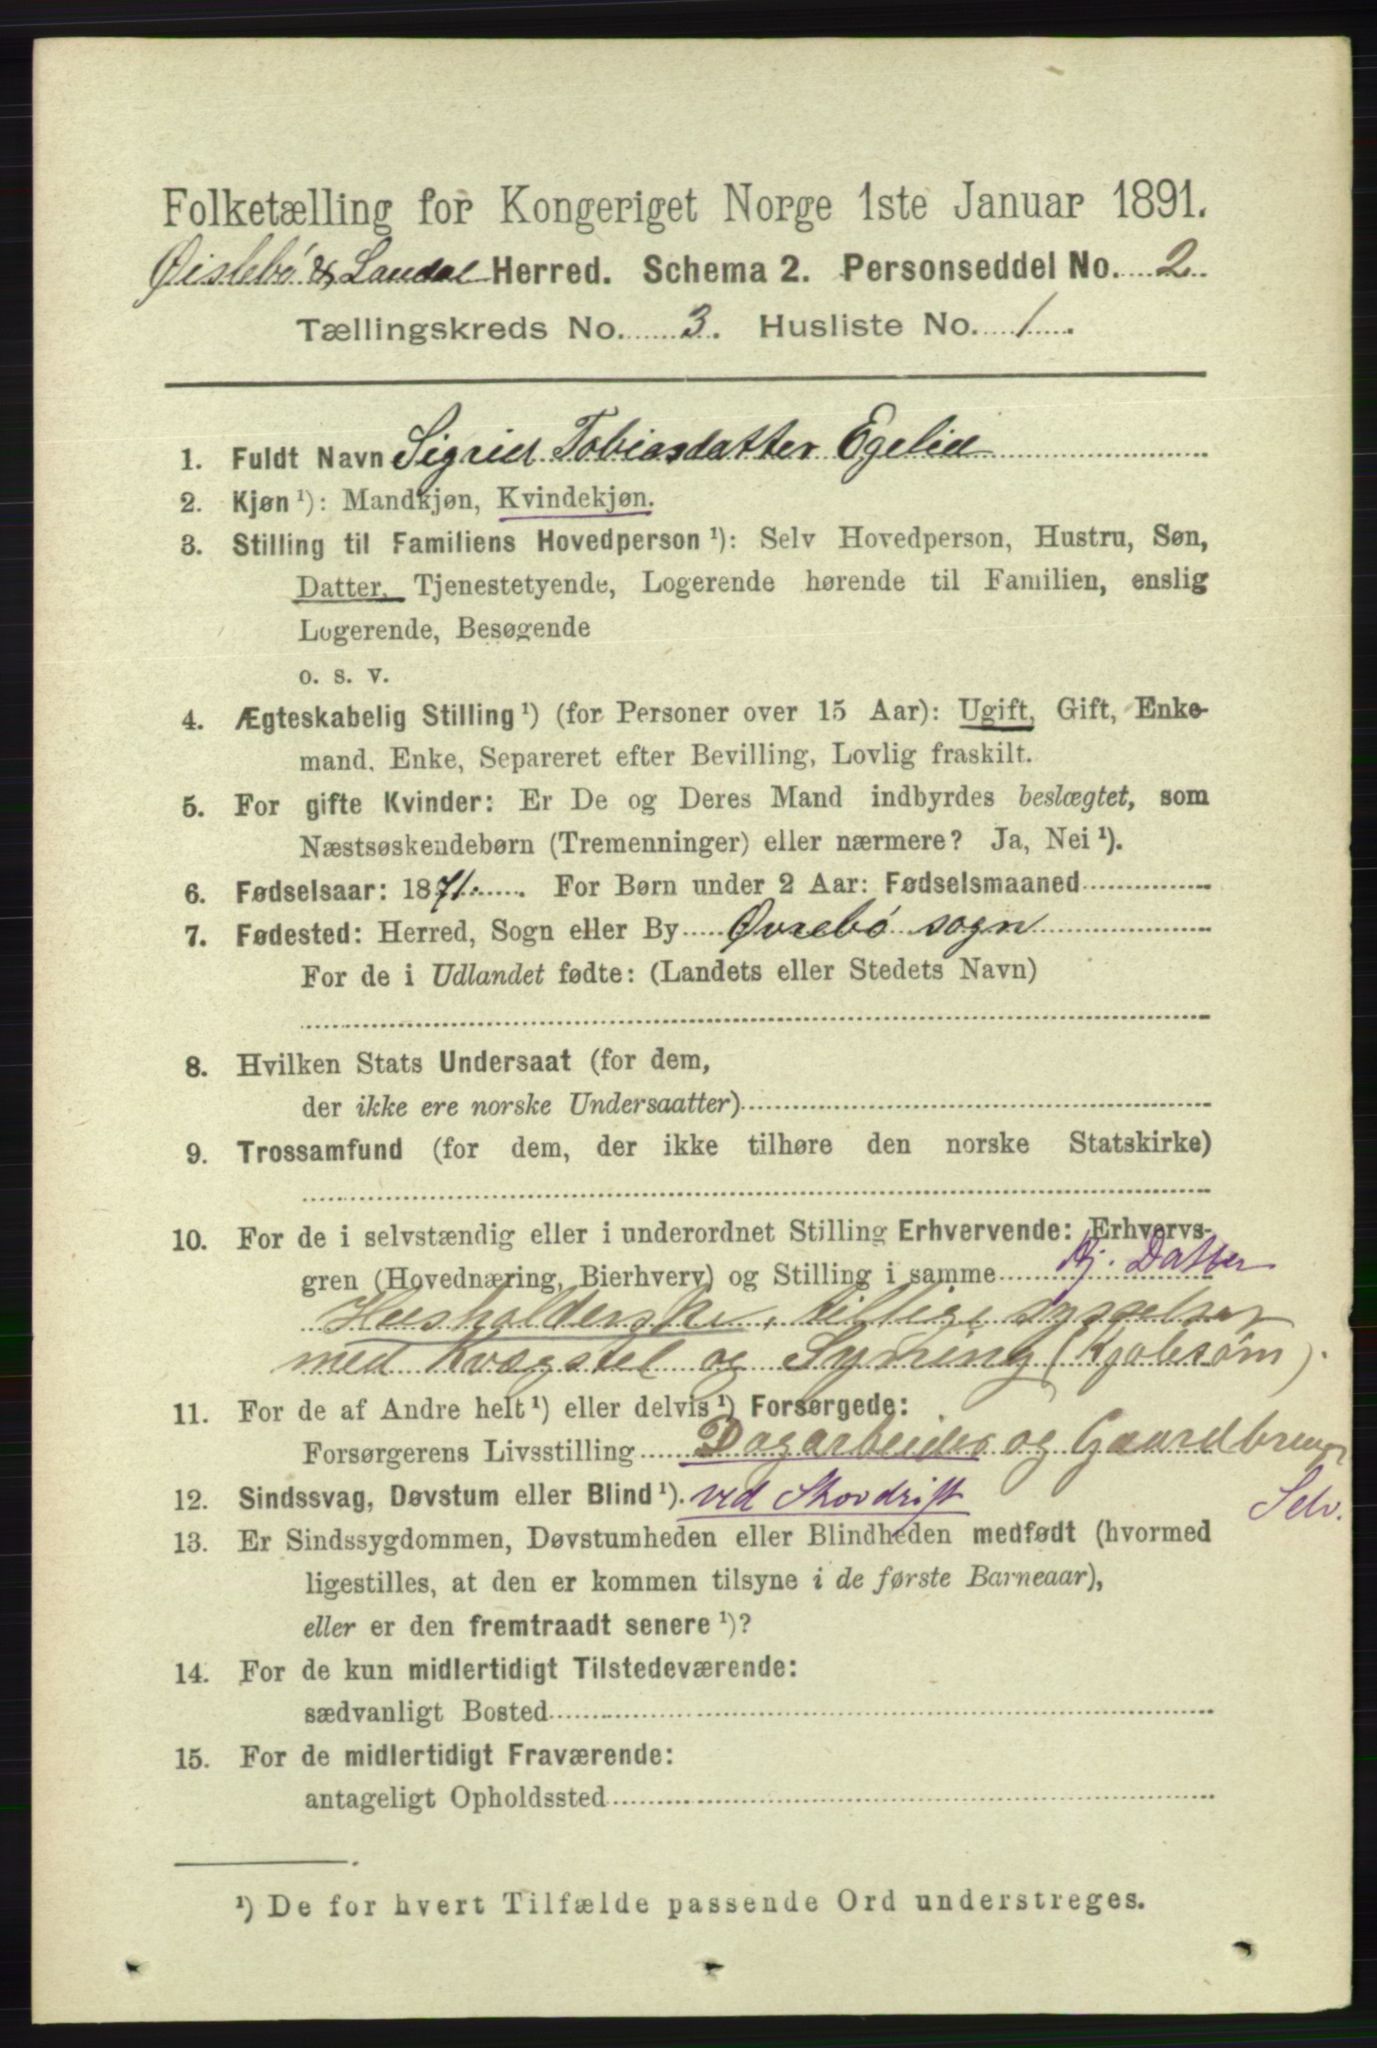 Folketælling for Kongeriget Norge 1ste Januar 1891.
Øislebö & Laudal Herred. Schema 2. Personseddel No. 2
Tællingskreds No. 3. Husliste No. 1.
1. Fuldt Navn Sigrid Tobiasdatter Egelid
2. Kjøn ¹): Mandkjøn, Kvindekjøn.
3. Stilling til Familiens Hovedperson ¹): Selv Hovedperson, Hustru, Søn,
Datter, Tjenestetyende, Logerende hørende til Familien, enslig
Logerende, Besøgende
o. s. v.
4. Ægteskabelig Stilling ¹) (for Personer over 15 Aar): Ugift, Gift, Enke-
mand, Enke, Separeret efter Bevilling, Lovlig fraskilt.
5. For gifte Kvinder: Er De og Deres Mand indbyrdes beslægtet, som
Næstsøskendebørn (Tremenninger) eller nærmere? Ja, Nei ¹).
6. Fødselsaar: 1871. For Børn under 2 Aar: Fødselsmaaned
7. Fødested: Herred, Sogn eller By Øvrebö sogn
For de i Udlandet fødte: (Landets eller Stedets Navn)
8. Hvilken Stats Undersaat (for dem,
der ikke ere norske Undersaatter)
9. Trossamfund (for dem, der ikke tilhøre den norske Statskirke)
10. For de i selvstændig eller i underordnet Stilling Erhvervende: Erhvervs-
gren (Hovednæring, Bierhverv) og Stilling i samme Hj. Datter
Husholderske, tillige sysselsat
med Kvægstel og Syning (Kjolesøm).
11. For de af Andre helt ¹) eller delvis ¹) Forsørgede:
Forsørgerens Livsstilling Dagarbeider og Gaardbruger
12. Sindssvag, Døvstum eller Blind ¹). ved Skovdrift Selv.
13. Er Sindssygdommen, Døvstumheden eller Blindheden medfødt (hvormed
ligestilles, at den er kommen tilsyne i de første Barneaar),
eller er den fremtraadt senere ¹)?
14. For de kun midlertidigt Tilstedeværende:
sædvanligt Bosted
15. For de midlertidigt Fraværende:
antageligt Opholdssted
¹) De for hvert Tilfælde passende Ord understreges.